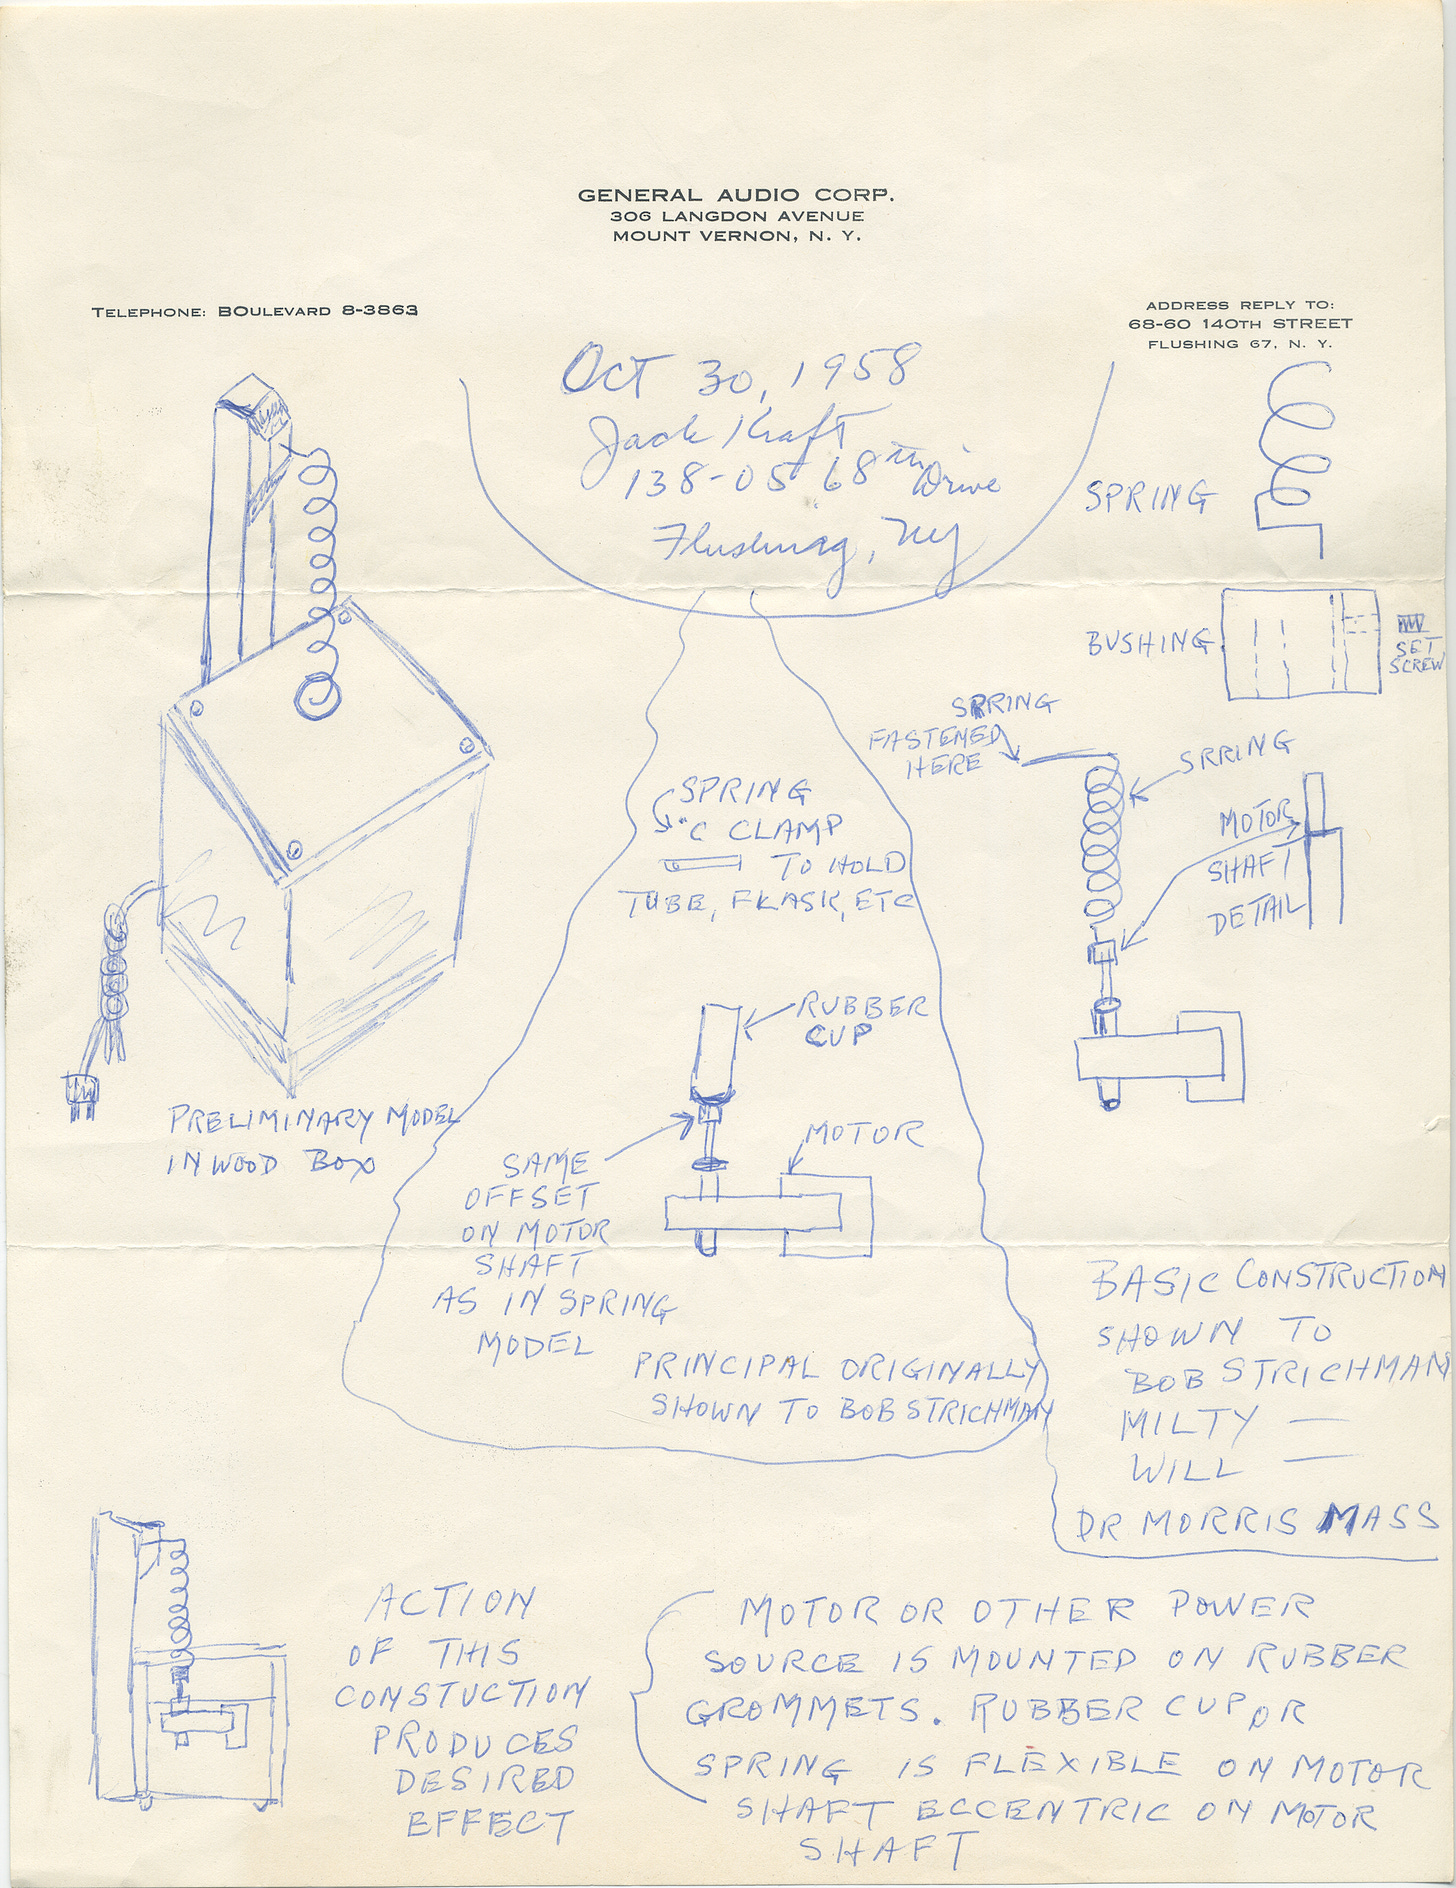 GENERAL AUDIO CORP.
306 LANGDON AVENUE
MOUNT VERNON, N. Y.
TELEPHONE: BOULEVARD 8-3863
ADDRESS REPLY TO:
68-60 140TH STREET
FLUSHING 67, N. Y.
Oct 30, 1958
Jack Kraft
138-05 68th Drive
Flushing, NY
SPRING
BUSHING
SET
SCREW
SPRING
FASTENED
HERE
SRRING
MOTOR
SHAFT
DETAIL
SPRING
"C CLAMP
TO HOLD
TUBE, FLASK, ETC
RUBBER
CUP
MOTOR
SAME
OFFSET
ON MOTOR
SHAFT
AS IN SPRING
MODEL
PRELIMINARY MODEL
IN WOOD BOX
PRINCIPAL ORIGINALLY
SHOWN TO BOB STRICHMAN
BASIC CONSTRUCTION
SHOWN TO
BOB STRICHMAN
MILTY —
WILL —
DR MORRIS MASS
ACTION
OF THIS
CONSTUCTION
PRODUCES
DESIRED
EFFECT
MOTOR OR OTHER POWER
SOURCE IS MOUNTED ON RUBBER
GROMMETS. RUBBER CUP OR
SPRING IS FLEXIBLE ON MOTOR
SHAFT ECCENTRIC ON MOTOR
SHAFT